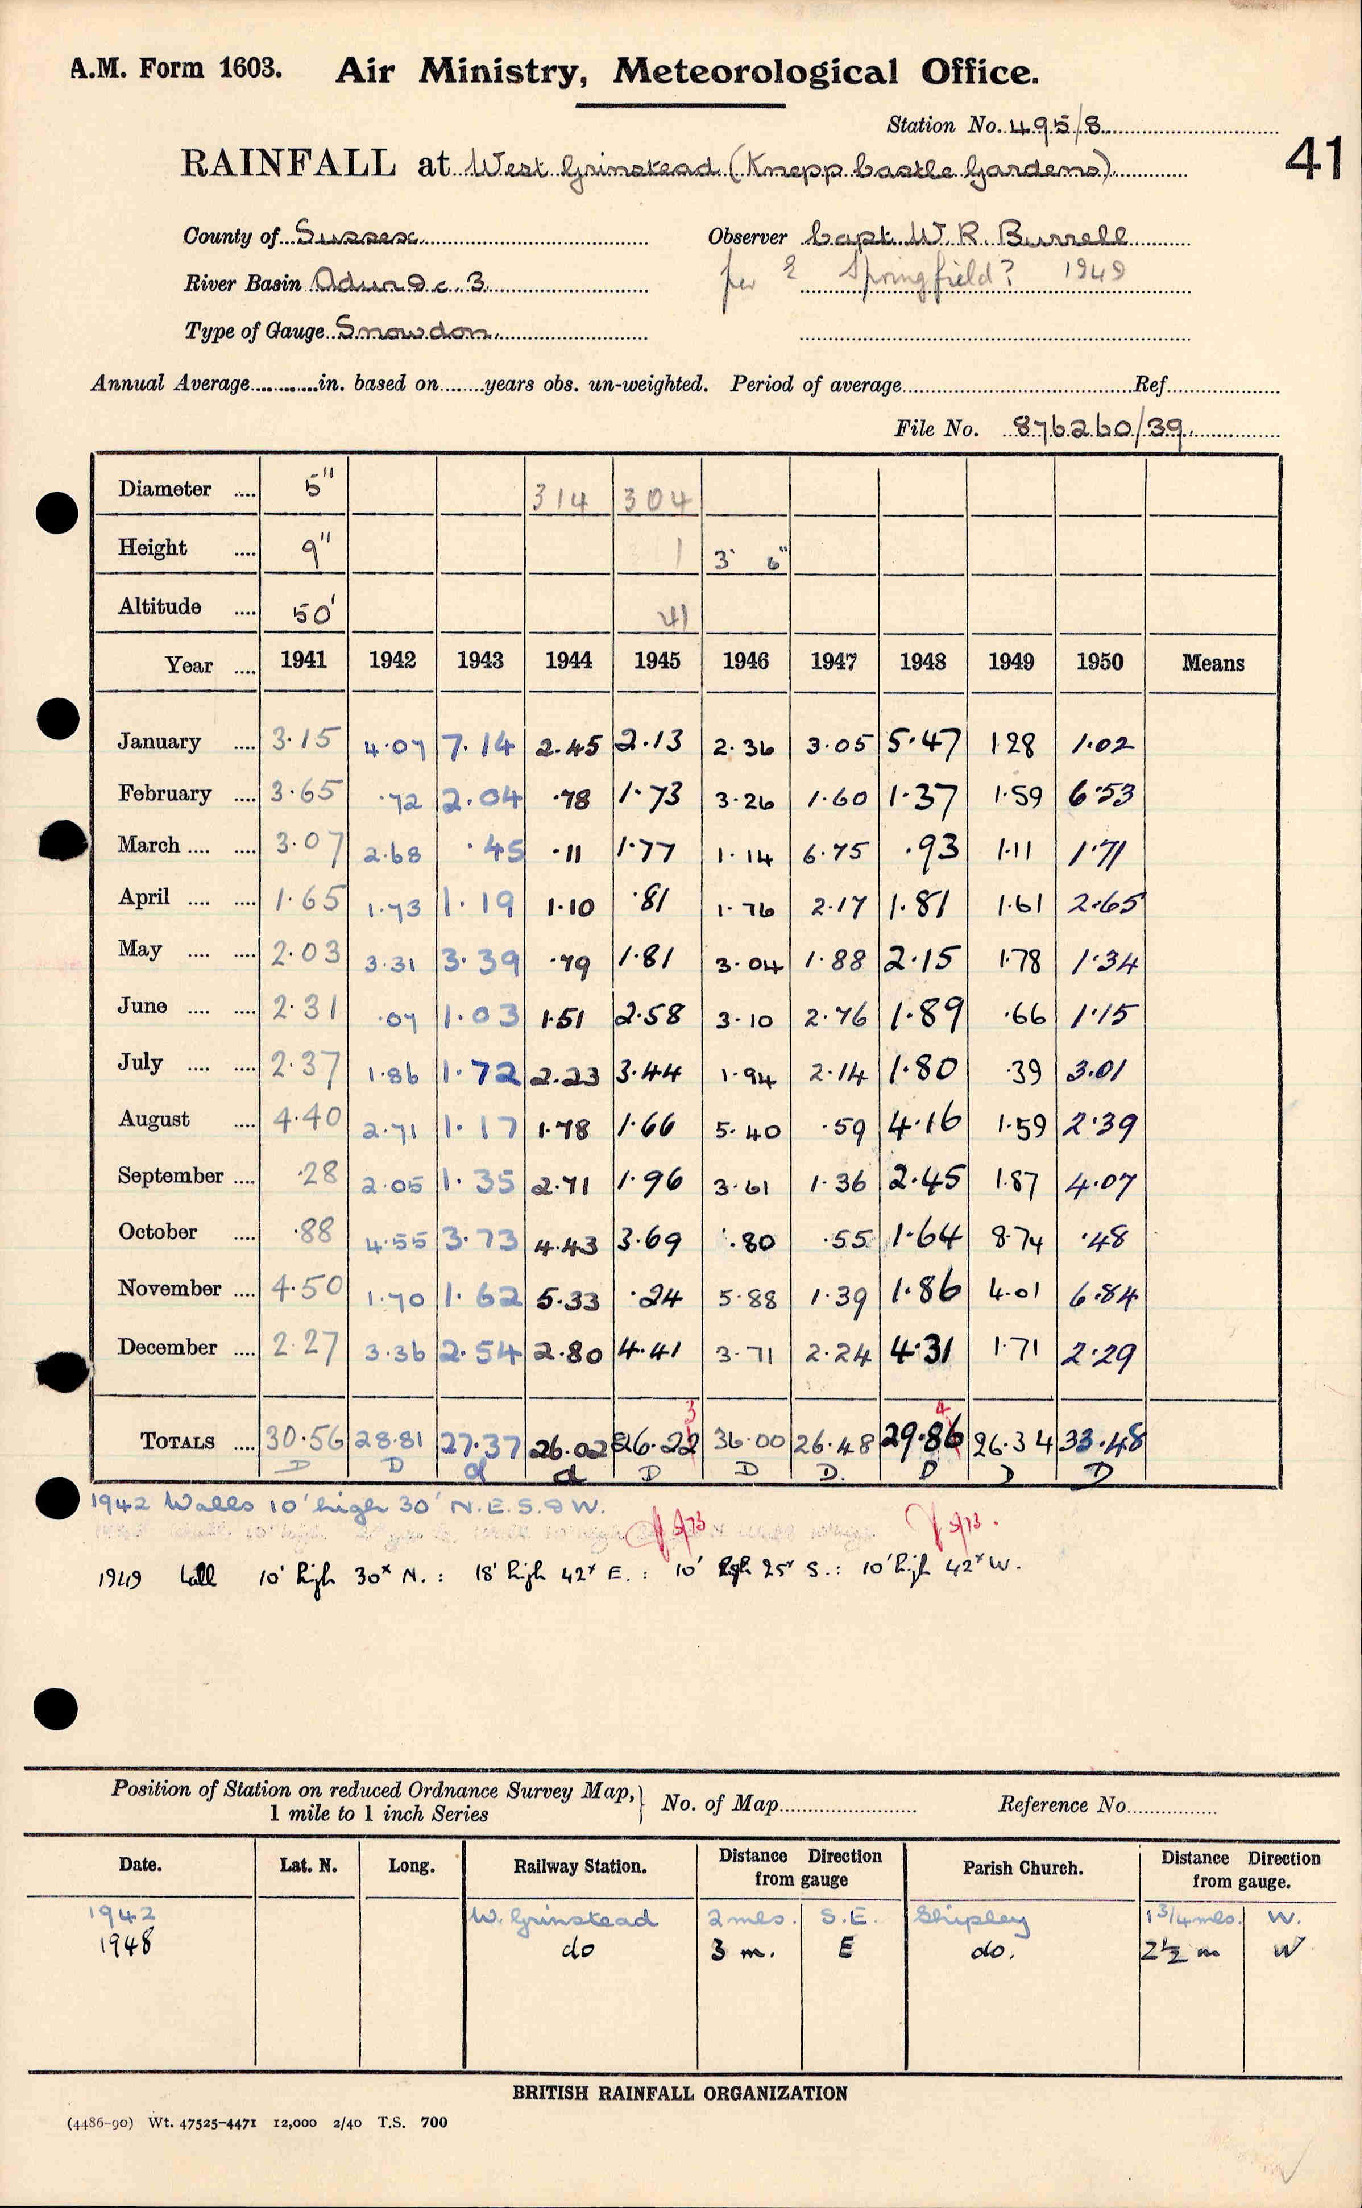 A.M. Form 1603. Air Ministry, Meteorological Office.
Station No. 495/8
41
RAINFALL at West Grinstead (Knepp Castle Gardens)
County of Sussex Observer Capt. W. R. Burrell
River Basin Adur 9c. 3 per Springfield? 1949
Type of Gauge Snowdon.
Annual Average in. based on years obs. un-weighted. Period of average Ref
File No. 876260/39
Diameter .... 5" 314 304
Height .... 9" 1 3' 6"
Altitude .... 50' 41
Year .... 1941 1942 1943 1944 1945 1946 1947 1948 1949 1950 Means
January .... 3.15 4.07 7.14 2.45 2.13 2.36 3.05 5.47 1.28 1.02
February .... 3.65 .72 2.04 .78 1.73 3.26 1.60 1.37 1.59 6.53
March .... .... 3.07 2.68 .45 .11 1.77 1.14 6.75 .93 1.11 1.71
April .... .... 1.65 1.73 1.19 1.10 .81 1.76 2.17 1.81 1.61 2.65
May .... .... 2.03 3.31 3.39 .79 1.81 3.04 1.88 2.15 1.78 1.34
June .... .... 2.31 .07 1.03 1.51 2.58 3.10 2.76 1.89 .66 1.15
July .... .... 2.37 1.86 1.72 2.23 3.44 1.94 2.14 1.80 .39 3.01
August .... 4.40 2.71 1.17 1.78 1.66 5.40 .59 4.16 1.59 2.39
September .... .28 2.05 1.35 2.71 1.96 3.61 1.36 2.45 1.87 4.07
October .... .88 4.55 3.73 4.43 3.69 .80 .55 1.64 8.74 .48
November .... 4.50 1.70 1.62 5.33 .24 5.88 1.39 1.86 4.01 6.84
December .... 2.27 3.36 2.54 2.80 4.41 3.71 2.24 4.31 1.71 2.29
3 4
TOTALS .... 30.56 28.81 27.37 26.02 26.22 36.00 26.48 29.86 26.34 33.48
D D d d D D D. D D D
1942 Walls 10' high 30' N.E.S. & W.
5/73 5/73.
1949 Wall 10' high 30x N. : 18' high 42x E. : 10' high 25x S. : 10' high 42x W.
Position of Station on reduced Ordnance Survey Map, 1 mile to 1 inch Series No. of Map Reference No.
Date. Lat. N. Long. Railway Station. Distance Direction from gauge Parish Church. Distance Direction from gauge.
1942 W. Grinstead 2 mls. S.E. Shipley 1 3/4 mls. W.
1948 do 3 m. E do. 2½ m W
BRITISH RAINFALL ORGANIZATION
(4486-90) Wt. 47525-4471 12,000 2/40 T.S. 700